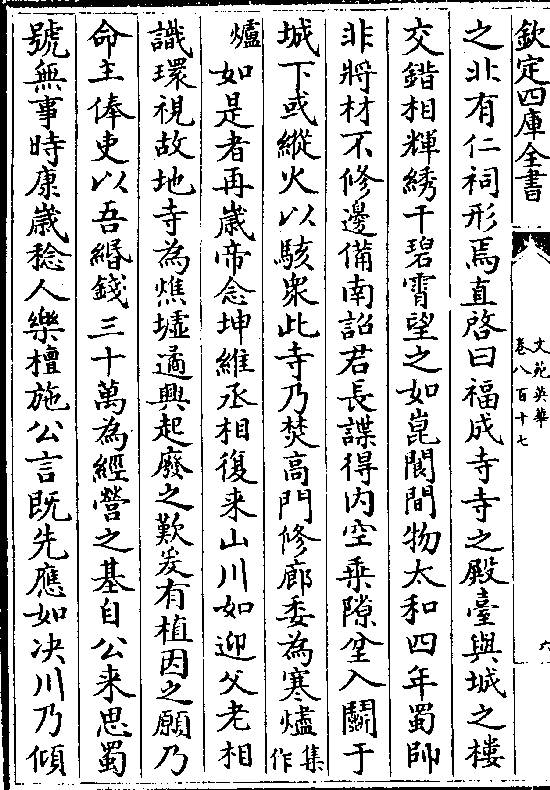 欽定四庫全書
文苑英華
卷八百十七
六
之北有仁祠形焉直啓曰福成寺寺之殿臺與城之樓
交錯相輝綉干碧霄望之如崑閬間物太和四年蜀帥
非將材不修邊備南詔君長諜得内空乗隙坌入鬭于
城下或縱火以駭衆此寺乃焚高門修廊委為寒爐集作
爐如是者再歳帝念坤維丞相復来山川如迎父老相
識環視故地寺為燋墟遹興起廢之歎爰有植因之願乃
命主俸吏以吾緡錢三十萬為經營之基自公来思蜀
號無事時康嵗稔人樂檀施公言既先應如决川乃傾